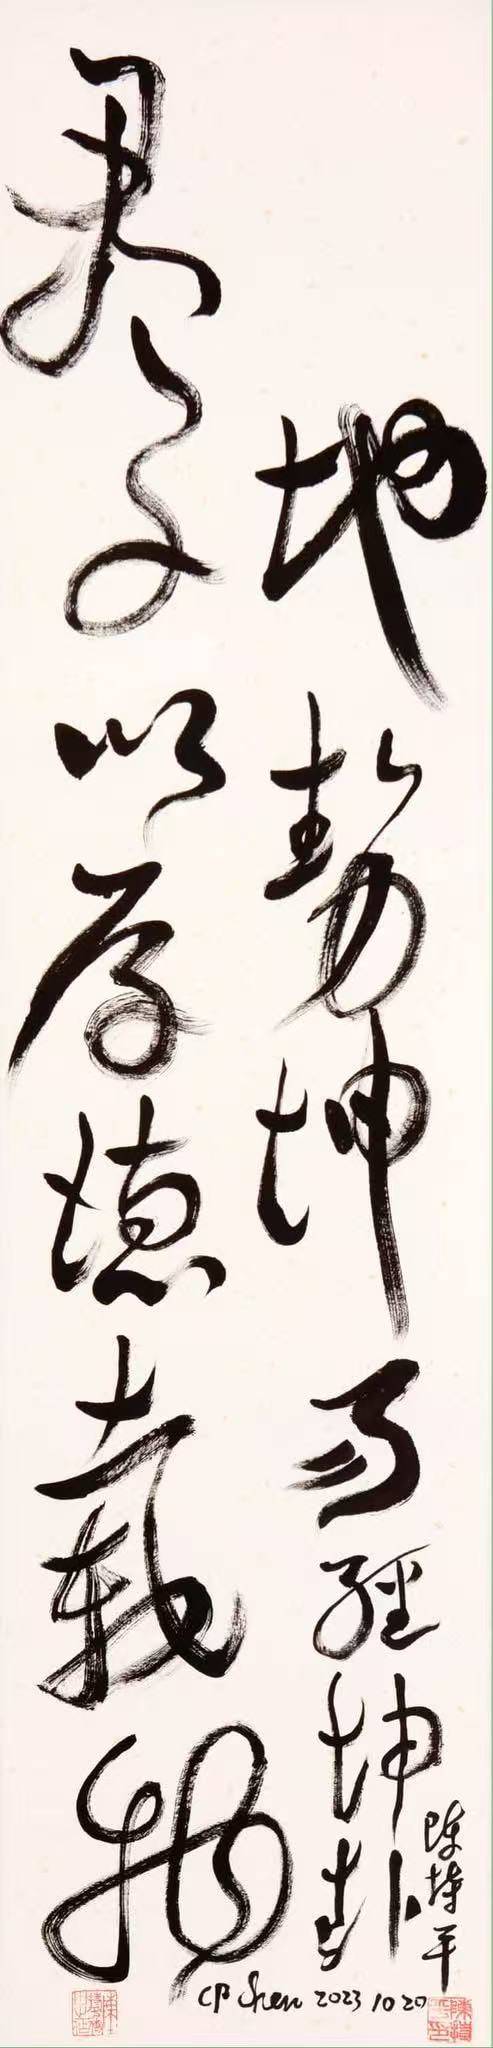 地勢坤
易經坤卦
君子以厚德載物
CP Shen 2023 10 20